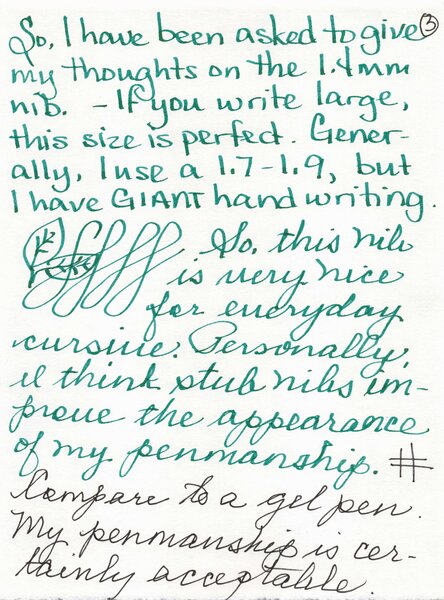 So, I have been asked to give ③
my thoughts on the 1.4mm
nib. - If you write large,
this size is perfect. Gener-
ally, I use a 1.7-1.9, but
I have GIANT handwriting.
So, this nib
is very nice
for everyday
cursive. Personally,
I think stub nibs im-
prove the appearance
of my penmanship. #
Compare to a gel pen.
My penmanship is cer-
tainly acceptable.